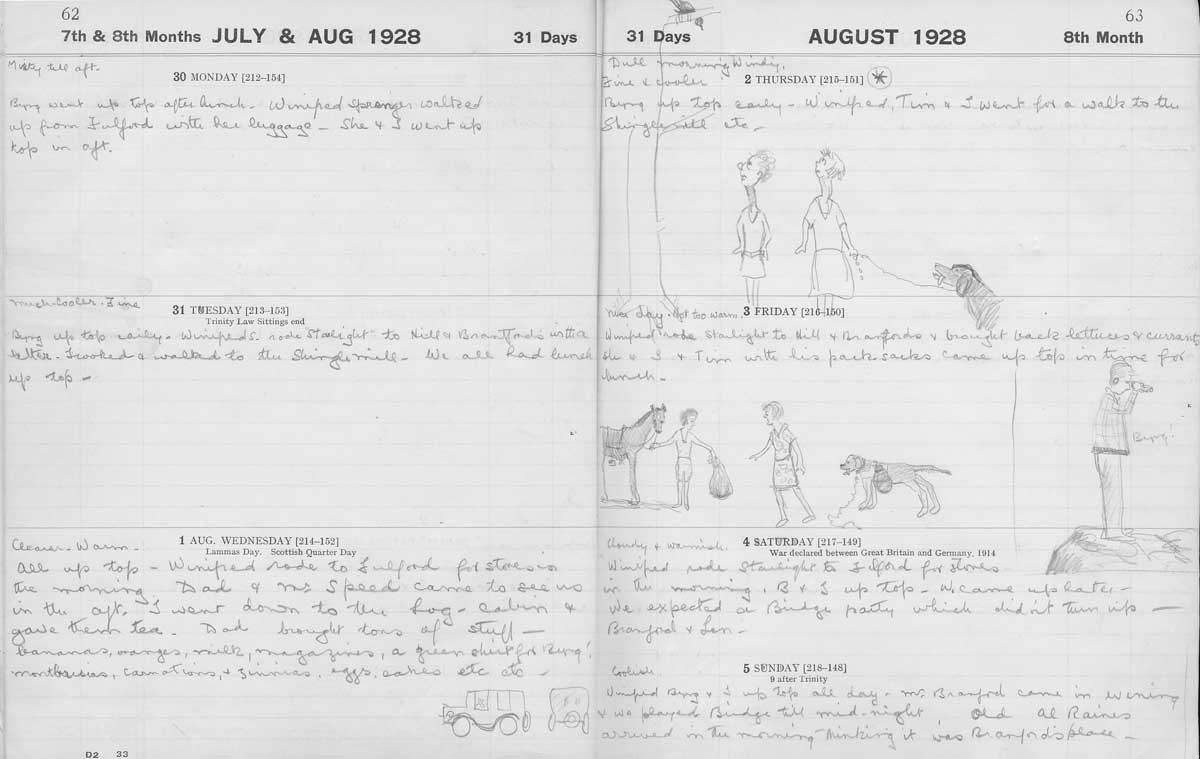 62
7th & 8th Months JULY & AUG 1928 31 Days
Misty till aft.
30 MONDAY [212–154]
Byng went up top after lunch. Winifred Spranger walked
up from Fulford with her luggage – She & I went up
top in aft.
much cooler. Fine
31 TUESDAY [213–153]
Trinity Law Sittings end
Byng up top early. Winifred S. rode Starlight to Hill & Branfords with a
letter. I cooked & walked to the Shinglemill – We all had lunch
up top –
Clearer. Warm.
1 AUG. WEDNESDAY [214–152]
Lammas Day. Scottish Quarter Day
All up top – Winifred rode to Fulford for stores in
the morning. Dad & Mrs Speed came to see us
in the aft. I went down to the log-cabin &
gave them tea. Dad brought tons of stuff –
bananas, oranges, milk, magazines, a green shirt for Byng!
montbresias, carnations, & zinnias, eggs, cakes etc etc –
D2 33
63
31 Days AUGUST 1928 8th Month
Dull morning Windy.
Fine & cooler
2 THURSDAY [215–151]
Byng up top early – Winifred, Tim & I went for a walk to the
Shinglemill etc –
nice day. Not too warm.
3 FRIDAY [216–150]
Winifred rode Starlight to Hill & Branfords & brought back lettuces & currants
She & I & Tim with his pack-sacks came up top in time for
lunch –
Byng!
Cloudy & warmish.
4 SATURDAY [217–149]
War declared between Great Britain and Germany, 1914
Winifred rode Starlight to Fulford for stores
in the morning. B & I up top – W came up later –
We expected a Bridge party which didn't turn up –
Branford & Len –
Coolish.
5 SUNDAY [218–148]
9 after Trinity
Winifred Byng & I up top all day – Mr. Branford came in evening
& we played Bridge till mid-night. Old Al Raines
arrived in the morning thinking it was Branford's place –